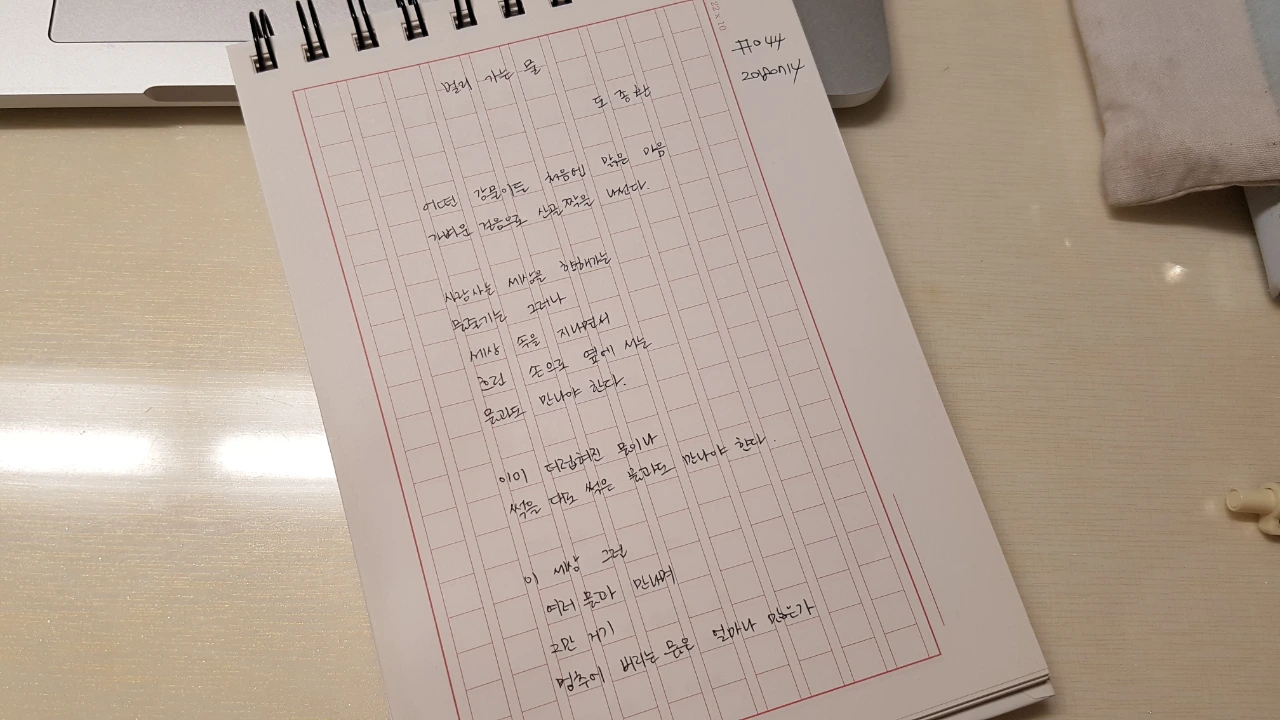 22 x 10
#044
20180714
멀리 가는 물
도종환
어떤 강물이든 처음엔 맑은 마음
가벼운 걸음으로 산골짝을 나선다.
사람사는 세상을 향해가는
물줄기는 그러나
세상 속을 지나면서
흐린 손으로 옆에 서는
물과도 만나야 한다.
이미 더럽혀진 물이나
썩을 대로 썩은 물과도 만나야 한다.
이 세상 그런
여러 물과 만나며
그만 거기
멈추어 버리는 물은 얼마나 많은가